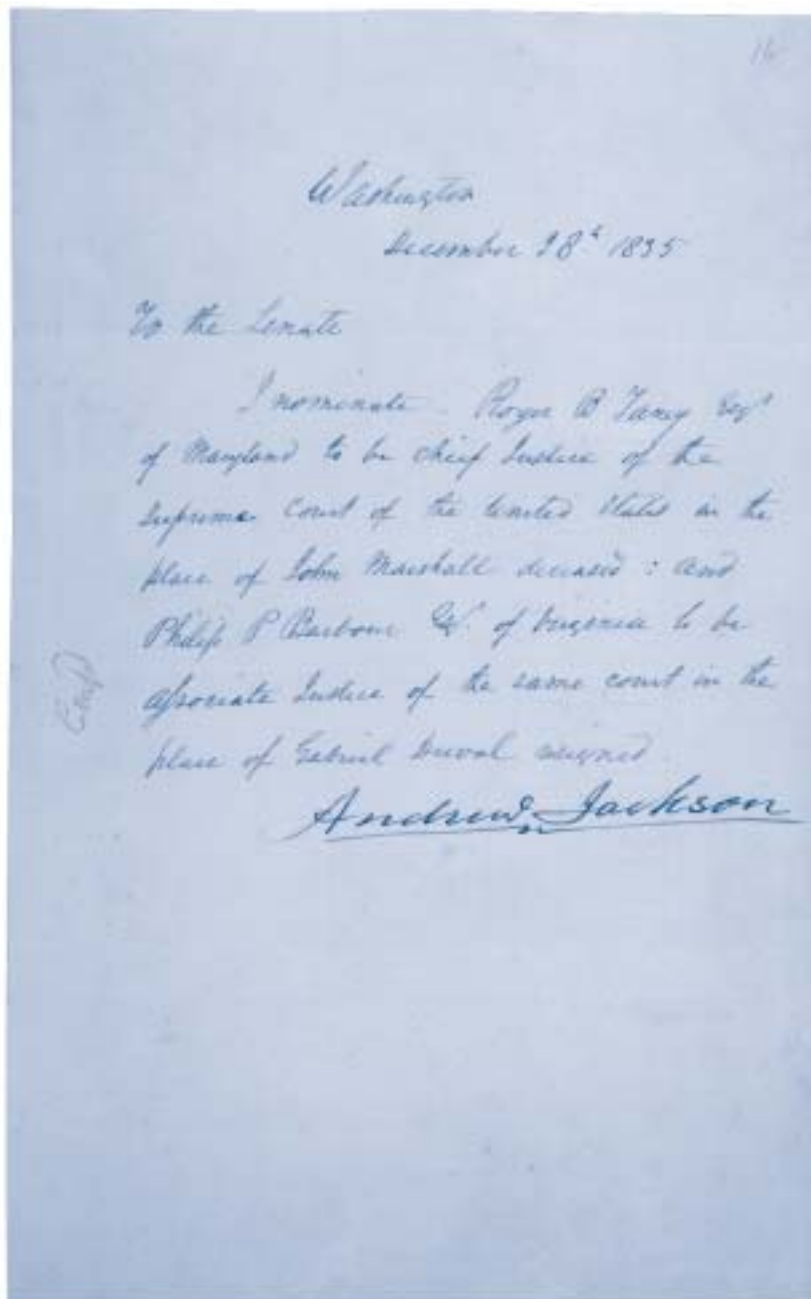 16
Washington
December 28th 1835
To the Senate
I nominate Roger B Taney Esqr
of Maryland to be chief Justice of the
Supreme Court of the United States in the
place of John Marshall deceased : and
Philip P Barbour Esqr. of Virginia to be
associate Justice of the same court in the
place of Gabriel Duval resigned
Andrew Jackson